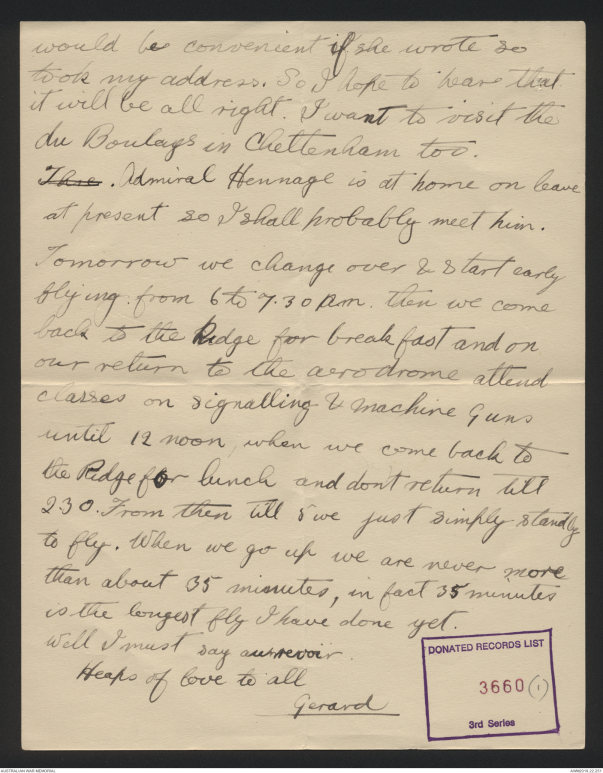 would be convenient if she wrote so
took my address. So I hope to hear that
it will be all right. I want to visit the
du Boulays in Cheltenham too.
Admiral Hennage is at home on leave
at present so I shall probably meet him.
Tomorrow we change over & start early
flying from 6 to 7.30 Am. then we come
back to the Ridge for breakfast and on
our return to the aerodrome attend
classes on signalling & machine Guns
until 12 noon, when we come back to
the Ridge for lunch and dont return till
2.30. From then till 5 we just simply standby
to fly. When we go up we are never more
than about 35 minutes, in fact 35 minutes
is the longest fly I have done yet.
Well I must say au revoir.
Heaps of love to all
Gerard
DONATED RECORDS LIST
3660 (1)
3rd Series
AUSTRALIAN WAR MEMORIAL